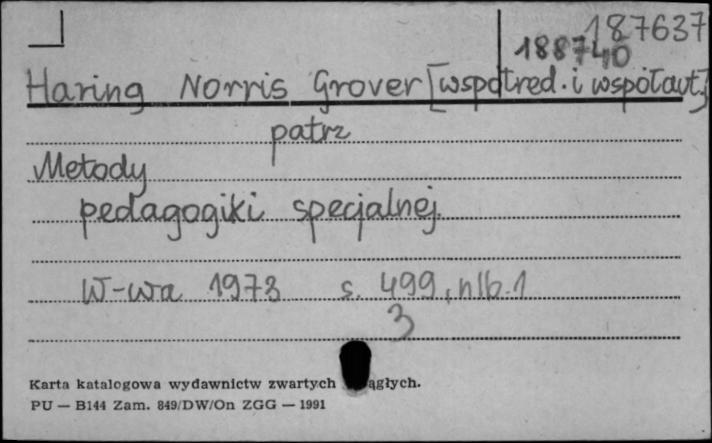 187637
188740
Haring Norris Grover [współred. i współaut.]
patrz
Metody
pedagogiki specjalnej.
W-wa 1973 s. 499, nlb. 1
3
Karta katalogowa wydawnictw zwartych ągłych.
PU — B144 Zam. 849/DW/On ZGG — 1991